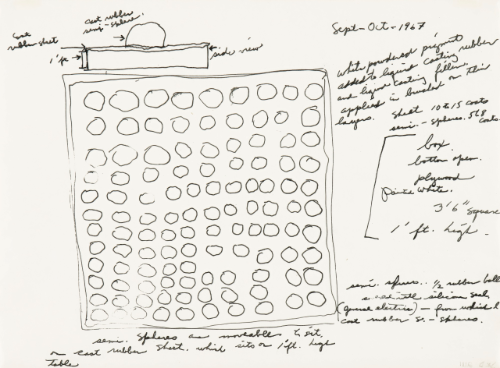 cast rubber
semi-sphere
rubber sheet
1"
side view
Sept-Oct-1967
white powdered pigment
added to liquid casting rubber
and liquid casting filler.
applied in brushed on thin
layers. sheet 10 to 15 coats
semi.-spheres. 5 to 8 coats
box.
bottom open.
plywood
painted white.
3'6" square
1' ft. high
semi. spheres.. 1/2 rubber ball
silicon seal
(general electric) — from which I
cast rubber s.-spheres.
semi. spheres are moveable to sit
on cast rubber sheet. which sits on 1 ft. high
table